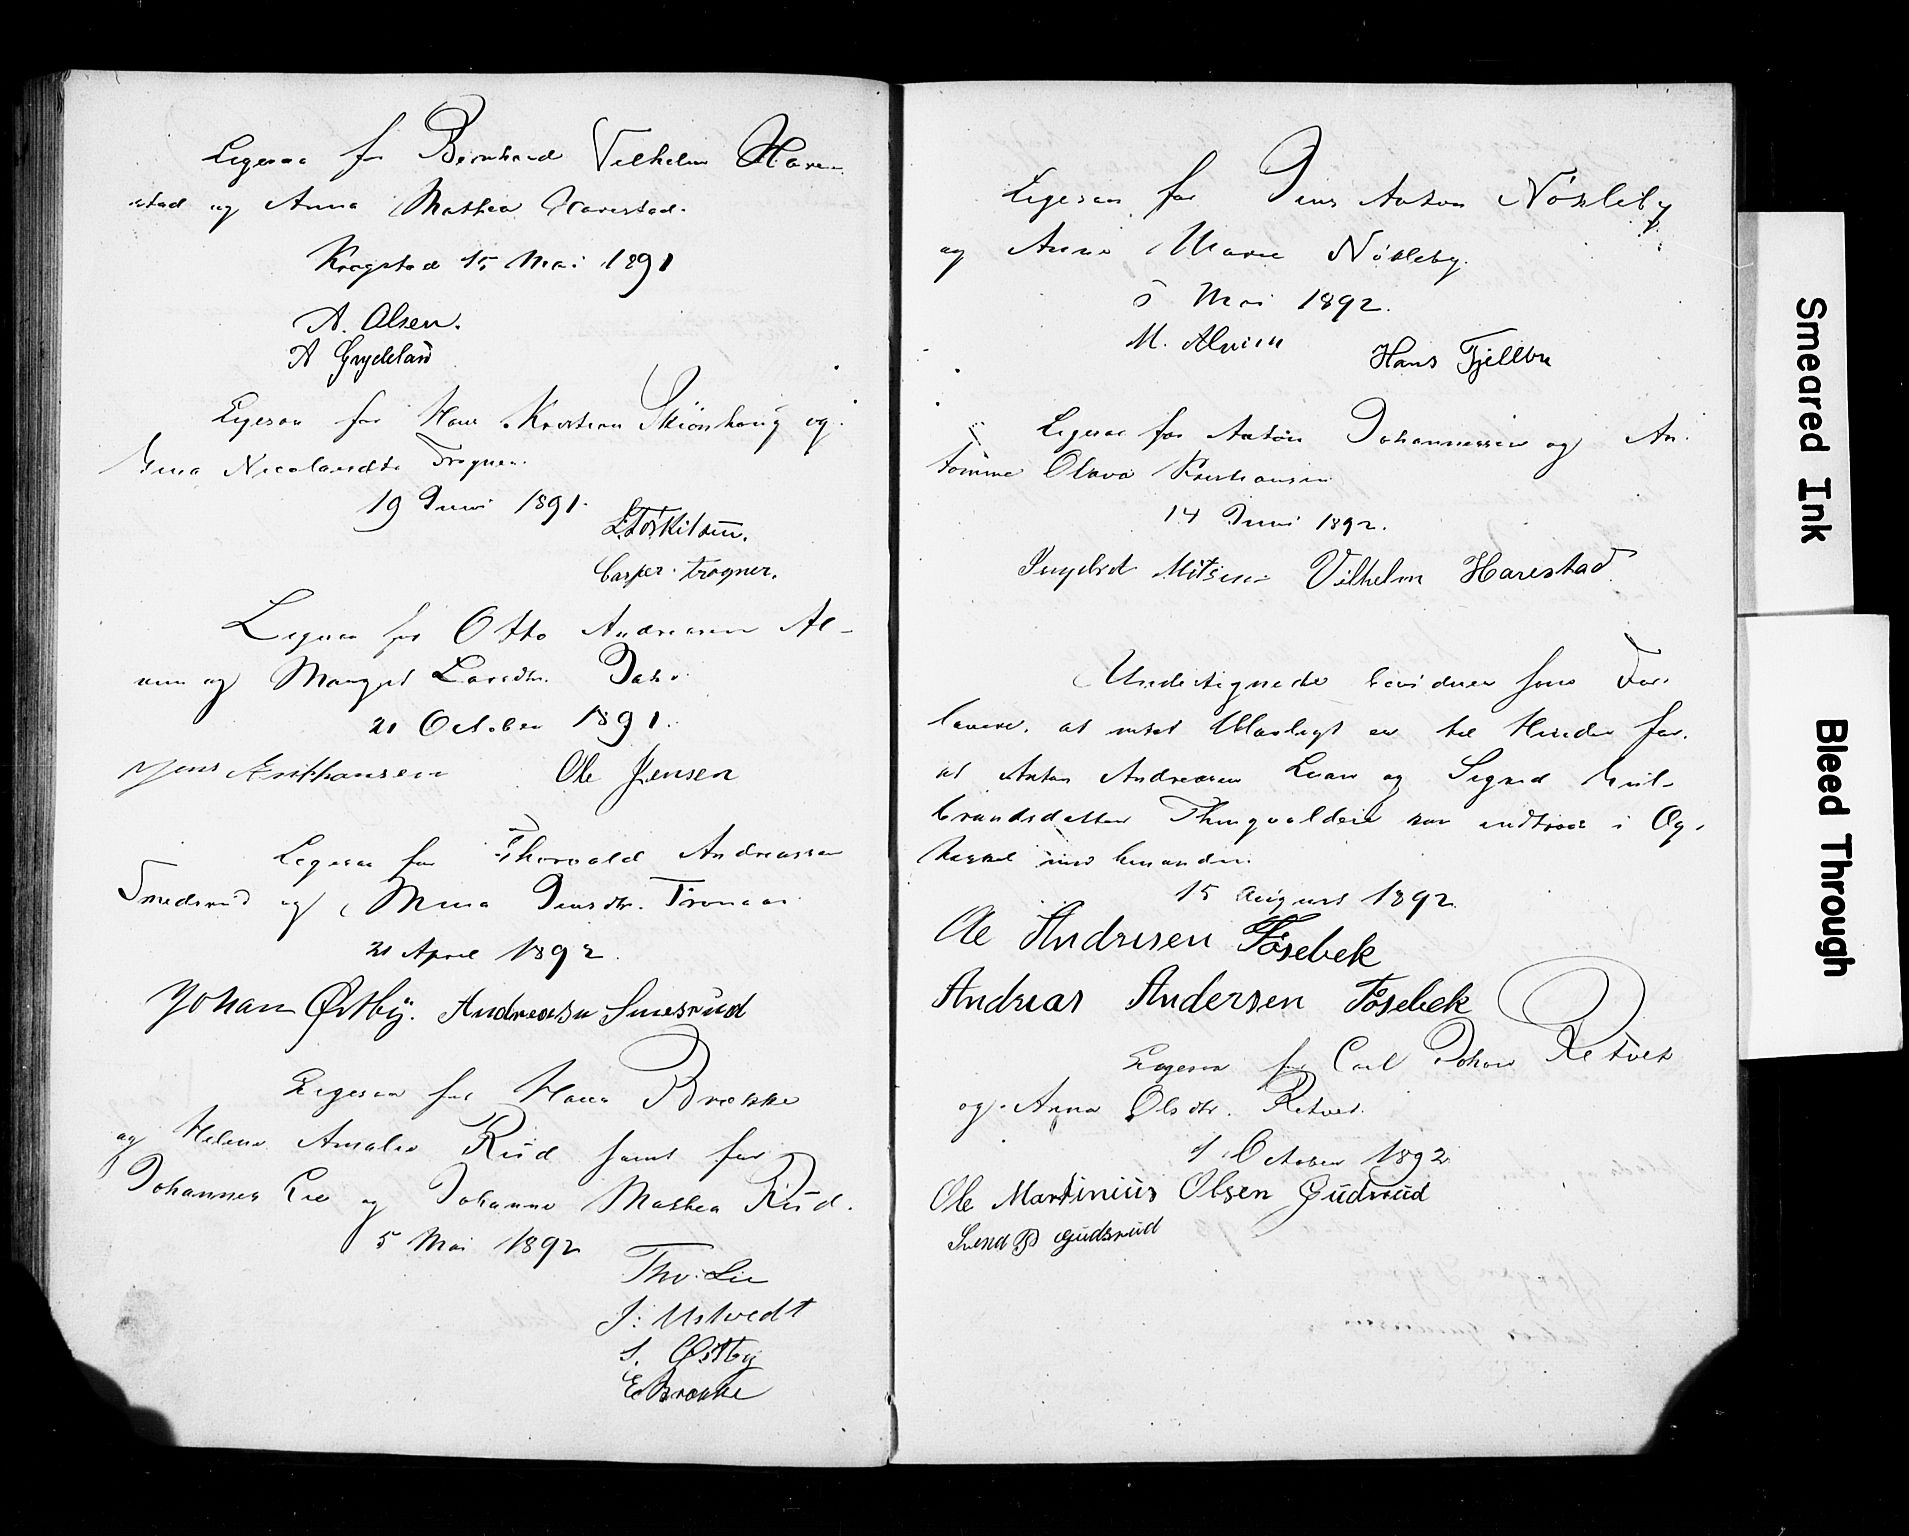 Ligesaa for Bernhard Vilhelm Hare-
stad og Anna Mathea Harestad.
Krogstad 15 Mai 1891
A. Olsen.
A Grydeland
Ligesaa for Hans Kristian Skiönhaug og
Gina Nicolaisdtr Frogner.
19 Juni 1891.
Casper Frogner.
Ligesaa for Otto Andreasen Al-
og Margit Larsdtr.
21 October 1891.
Jens Knuthansen
Ole Jensen
Ligesaa for Thorvald Andreassen
Smedsrud og Mina Jensdtr. Tronaas
21 April 1892.
Johan Østby. Andreassen Smesrud
Ligesaa for Hans Brække
og Helene Amalie Rud samt for
Johannes Lie og Johanne Mathea Rud.
5 Mai 1892
Thv. Lie
J. Ustvedt
S. Østby
E Brække
Ligesaa for Jens Anton Nökleby
og Anne Marie Nökleby.
5 Mai 1892.
M. Alvim
Hans Fjellbu
Ligesaa for Anton Johannessen og An-
tomine Olava Kristiansen
14 Juni 1892.
Vilhelm Harestad
Undertegnede bevidner som For-
lovere, at intet Ulovligt er til Hinder for,
at Anton Andreasen Luan og Sigrid Gul-
brandsdatter kan indtræde i Æg-
teskab med hinanden.
15 August 1892
Ole Andresen Fosebek
Andreas Andersen Fosebek
Ligesaa for Carl Johan Retvet
og Anna Olsdtr. Retvet.
1 October 1892
Ole Martinius Olsen Gudsrud
Svend P Gudsrud
Smeared Ink
Bleed Through